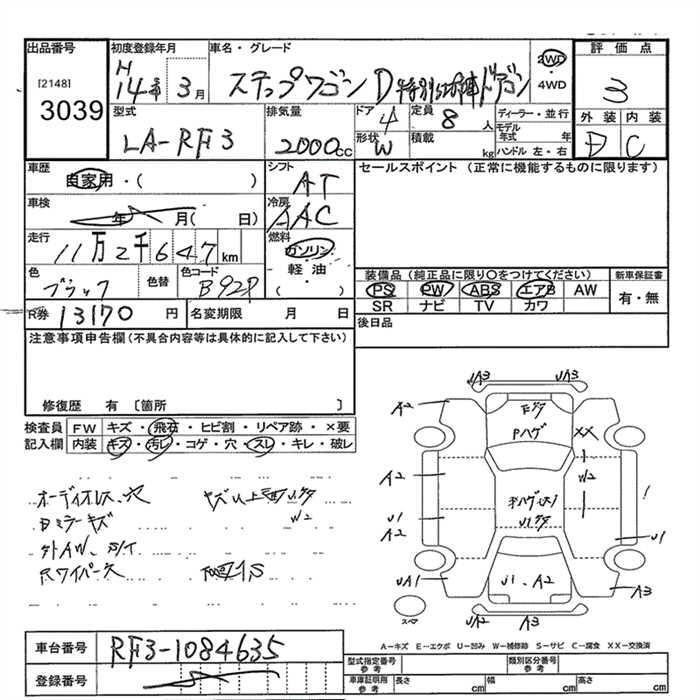 出品番号
[2148]
3039
初度登録年月
H
14年 3月
車名・グレード
ステップワゴン D
2WD
・
4WD
評価点
3
外装 内装
E C
型式
LA-RF3
排気量
2000cc
ドア 4
形状 W
定員 8 人
積載 kg
ディーラー・並行
モデル年式 年
ハンドル 左・右
車歴
自家用・( )
シフト
AT
車検
年 月( 日)
冷房
AAC
走行
11万2千647km
燃料
ガソリン・
軽油・
( )
色
ブラック
色替
色コード
B92P
R券 13170 円
名変期限 月 日
セールスポイント (正常に機能するものに限ります)
装備品(純正品に限り○をつけてください)
PS PW ABS エアB AW
SR ナビ TV カワ
新車保証書
有・無
後日品
注意事項申告欄(不具合内容等は具体的に記入して下さい)
修復歴 有 〔箇所 〕
検査員記入欄
FW キズ・飛石・ヒビ割・リペア跡・×要
内装 キズ・汚レ・コゲ・穴・スレ・キレ・破レ
オーディオレス、穴
ミラーキズ
W2
外AW、
Rワイパー欠
UA3 UA3
A2
Pハゲ
XX
A2
W2
U1
A2
U1
UA1
U1、A2
A3
スペア
A3
A…キズ E…エクボ U…凹み W…補修跡 S…サビ C…腐食 XX…交換済
車台番号
RF3-1084635
登録番号
型式指定番号
参考
類別区分番号
参考
車庫証明用
参考
長さ cm
幅 cm
高さ cm